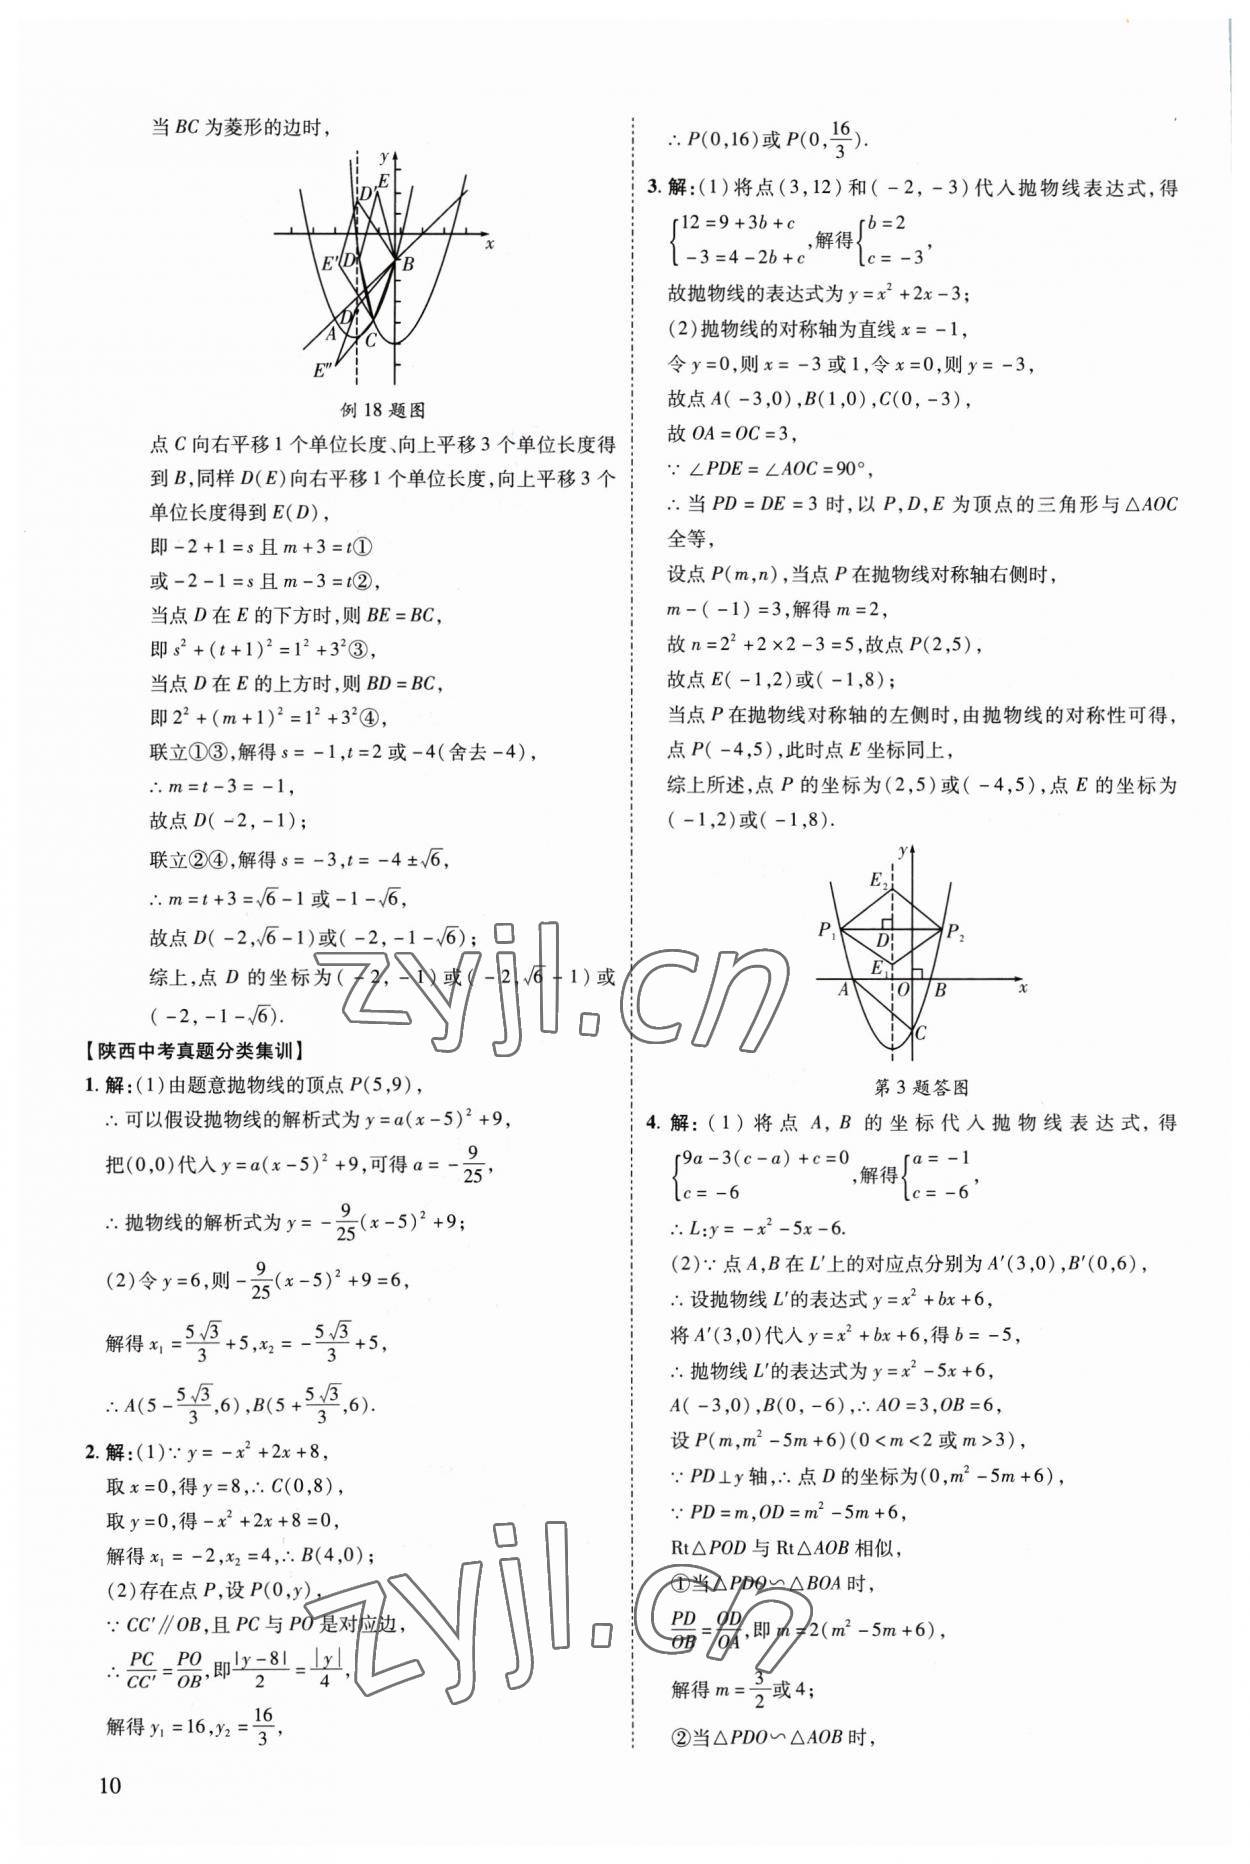 当 BC 为菱形的边时,
y
D'
E
x
E'
D
B
D
A
C
E"
例 18 题图
点 C 向右平移 1 个单位长度、向上平移 3 个单位长度得
到 B,同样 D(E)向右平移 1 个单位长度,向上平移 3 个
单位长度得到 E(D),
即 -2+1=s 且 m+3=t①
或 -2-1=s 且 m-3=t②,
当点 D 在 E 的下方时,则 BE=BC,
即 s²+(t+1)²=1²+3²③,
当点 D 在 E 的上方时,则 BD=BC,
即 2²+(m+1)²=1²+3²④,
联立①③,解得 s=-1,t=2 或 -4(舍去 -4),
∴ m=t-3=-1,
故点 D(-2,-1);
联立②④,解得 s=-3,t=-4±√6,
∴ m=t+3=√6-1 或 -1-√6,
故点 D(-2,√6-1)或(-2,-1-√6);
综上,点 D 的坐标为(-2,-1)或(-2,√6-1)或
(-2,-1-√6).
【陕西中考真题分类集训】
1. 解:(1)由题意抛物线的顶点 P(5,9),
∴ 可以假设抛物线的解析式为 y=a(x-5)²+9,
把(0,0)代入 y=a(x-5)²+9,可得 a=-9/25,
∴ 抛物线的解析式为 y=-9/25(x-5)²+9;
(2)令 y=6,则 -9/25(x-5)²+9=6,
解得 x₁=5√3/3+5,x₂=-5√3/3+5,
∴ A(5-5√3/3,6),B(5+5√3/3,6).
2. 解:(1)∵ y=-x²+2x+8,
取 x=0,得 y=8,∴ C(0,8),
取 y=0,得 -x²+2x+8=0,
解得 x₁=-2,x₂=4,∴ B(4,0);
(2)存在点 P,设 P(0,y),
∵ CC'∥OB,且 PC 与 PO 是对应边,
∴ PC/CC'=PO/OB,即|y-8|/2=|y|/4,
解得 y₁=16,y₂=16/3,
10
∴ P(0,16)或 P(0,16/3).
3. 解:(1)将点(3,12)和(-2,-3)代入抛物线表达式,得
{12=9+3b+c
-3=4-2b+c,解得{b=2
c=-3,
故抛物线的表达式为 y=x²+2x-3;
(2)抛物线的对称轴为直线 x=-1,
令 y=0,则 x=-3 或 1,令 x=0,则 y=-3,
故点 A(-3,0),B(1,0),C(0,-3),
故 OA=OC=3,
∵ ∠PDE=∠AOC=90°,
∴ 当 PD=DE=3 时,以 P,D,E 为顶点的三角形与△AOC
全等,
设点 P(m,n),当点 P 在抛物线对称轴右侧时,
m-(-1)=3,解得 m=2,
故 n=2²+2×2-3=5,故点 P(2,5),
故点 E(-1,2)或(-1,8);
当点 P 在抛物线对称轴的左侧时,由抛物线的对称性可得,
点 P(-4,5),此时点 E 坐标同上,
综上所述,点 P 的坐标为(2,5)或(-4,5),点 E 的坐标为
(-1,2)或(-1,8).
y
E₂
P₁
D
P₂
E₁
A
O
B
x
C
第 3 题答图
4. 解:(1)将点 A, B 的坐标代入抛物线表达式,得
{9a-3(c-a)+c=0
c=-6,解得{a=-1
c=-6,
∴ L:y=-x²-5x-6.
(2)∵ 点 A,B 在 L'上的对应点分别为 A'(3,0),B'(0,6),
∴ 设抛物线 L'的表达式 y=x²+bx+6,
将 A'(3,0)代入 y=x²+bx+6,得 b=-5,
∴ 抛物线 L'的表达式为 y=x²-5x+6,
A(-3,0),B(0,-6),∴ AO=3,OB=6,
设 P(m,m²-5m+6)(0<m<2 或 m>3),
∵ PD⊥y 轴,∴ 点 D 的坐标为(0,m²-5m+6),
∵ PD=m,OD=m²-5m+6,
Rt△POD 与 Rt△AOB 相似,
①当△PDO∽△BOA 时,
PD/OB=OD/OA,即 m=2(m²-5m+6),
解得 m=3/2或 4;
②当△PDO∽△AOB 时,
zyjl.cn
zyjl.cn